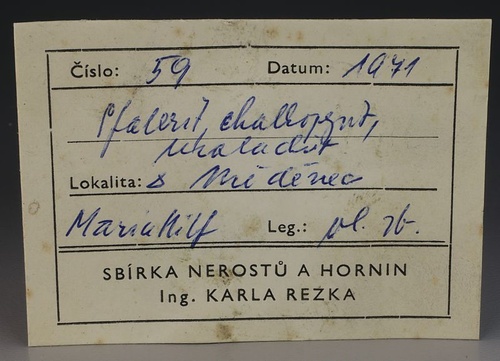 Číslo: 59 Datum: 1971
Sfalerit, chalkopyrit,
malachit
Lokalita: Měděnec
Mariahilf Leg.: vl. sb.
SBÍRKA NEROSTŮ A HORNIN
Ing. KARLA REZKA